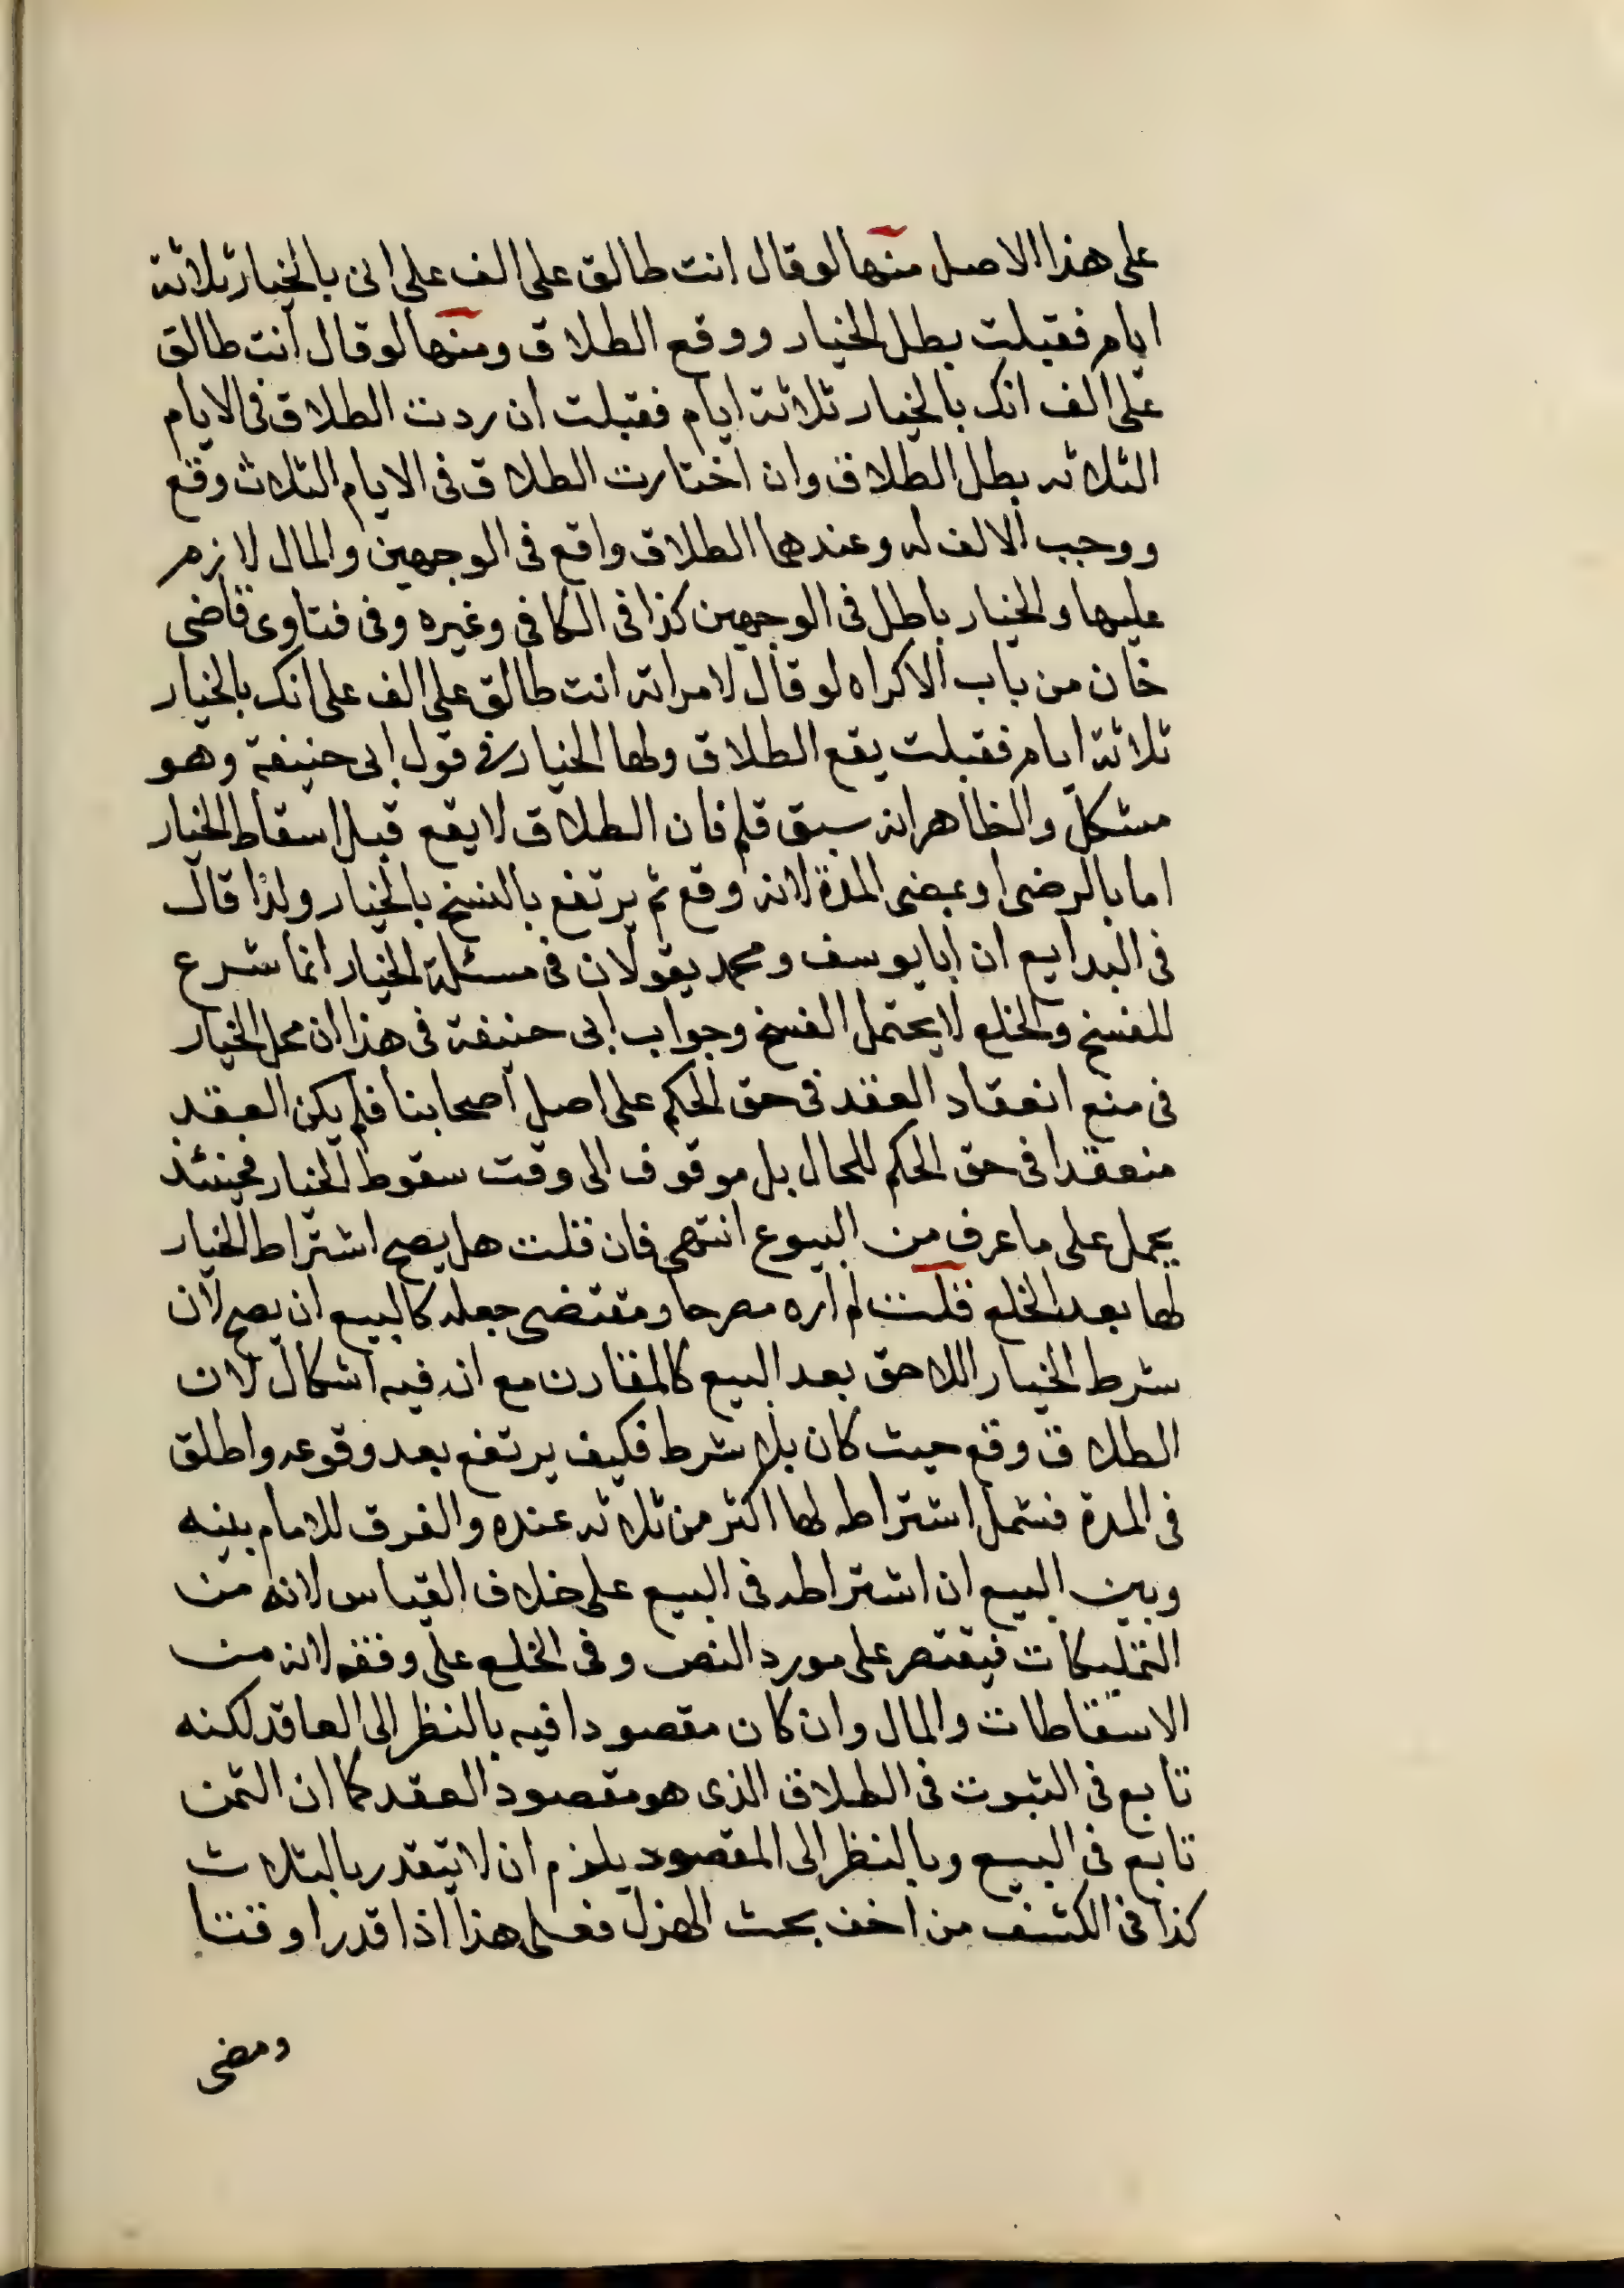 على هذا الاصل منها لو قال انت طالق على الف على انى بالخيار ثلاثة
ايام فقبلت بطل الخيار ووقع الطلاق ومنها لو قال انت طالق
على الف انك بالخيار ثلاثة ايام فقبلت ان ردت الطلاق فى الايام
الثلاثه بطل الطلاق وان اختارت الطلاق فى الايام الثلاث وقع
ووجب الالف له وعندهما الطلاق واقع فى الوجهين والمال لازم
عليها والخيار باطل فى الوجهين كذا فى الكافى وغيره وفى فتاوى قاضى
خان من باب الاكراه لو قال لامراته انت طالق على الف على انك بالخيار
ثلاثة ايام فقبلت يقع الطلاق ولها الخيار فى قول ابى حنيفة وهو
مشكل والظاهر انه سبق قلم فان الطلاق لا يقع قبل اسقاط الخيار
اما بالرضى او بمضى المدة لانه وقع ثم يرتفع بالفسخ بالخيار ولذا قال
فى البدايع ان ابا يوسف ومحمد يقولان فى مسئلة الخيار انما شرع
للفسخ والخلع لا يحتمل الفسخ وجواب ابى حنيفة فى هذا ان محل الخيار
فى منع انعقاد العقد فى حق الحكم على اصل اصحابنا فلم يكن العقد
منعقدا فى حق الحكم للحال بل موقوف الى وقت سقوط الخيار فحينئذ
يحمل على ما عرف من البيوع انتهى فان قلت هل يصح اشتراط الخيار
لها بعد الخلع قلت لم اره مصرحا ومقتضى جعله كالبيع ان يصح لان
شرط الخيار اللاحق بعد البيع كالمقارن مع انه فيه اشكال لان
الطلاق وقع حيث كان بلا شرط فكيف يرتفع بعد وقوعه واطلق
فى المدة فشمل اشتراطه لها اكثر من ثلاثه عنده والفرق للامام بينه
وبين البيع ان اشتراطه فى البيع على خلاف القياس لانه من
التمليكات فيقتصر على مورد النص وفى الخلع على وفقه لانه من
الاسقاطات والمال وان كان مقصودا فيه بالنظر الى العاقد لكنه
تابع فى الثبوت فى الطلاق الذى هو مقصود العقد كما ان الثمن
تابع فى البيع وبالنظر الى المقصود يلزم ان لا يتقدر بالثلاث
كذا فى الكشف من اخف بحث الهزل فعلى هذا اذا قدرا وقتا
ومضى